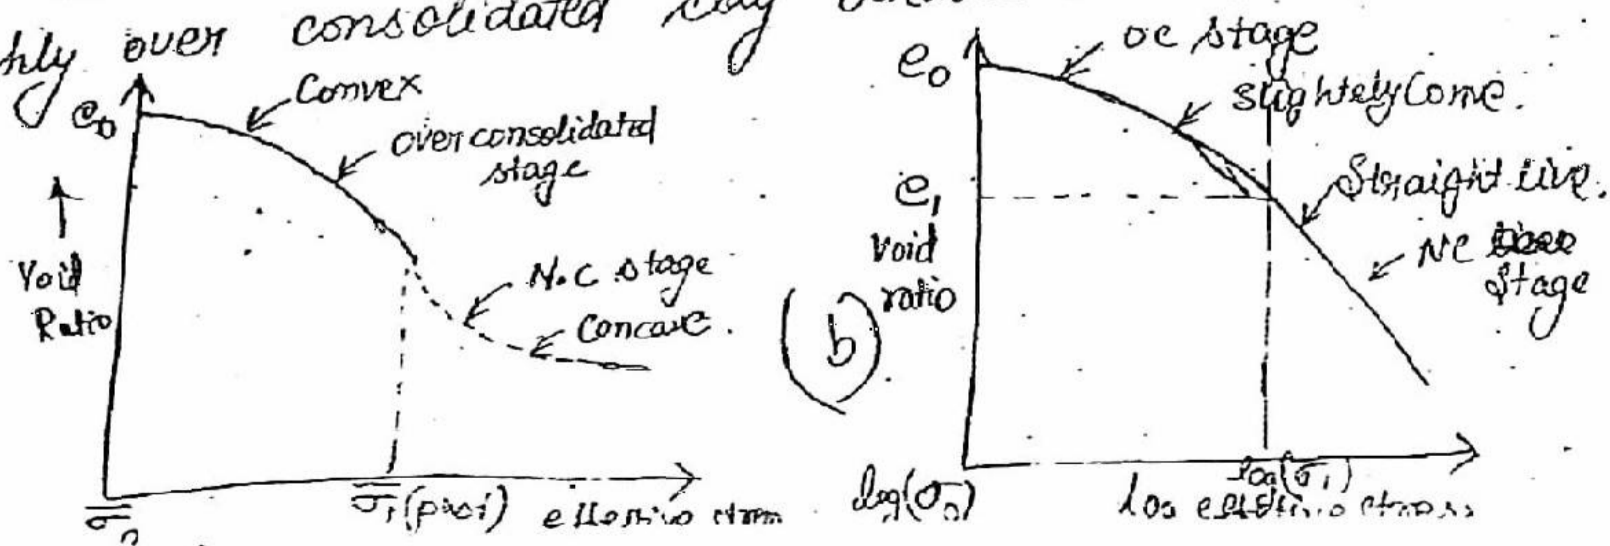 hly over consolidated
e₀
Convex
over consolidated
stage
Void
Ratio
N.C stage
Concave.
σ̅₁
effective
e₀
oc stage
slightely
e₁
Void
ratio
Straight Line.
NC
Stage
(b)
log(σ̅₀)
log(σ̅₁)
log effective stress